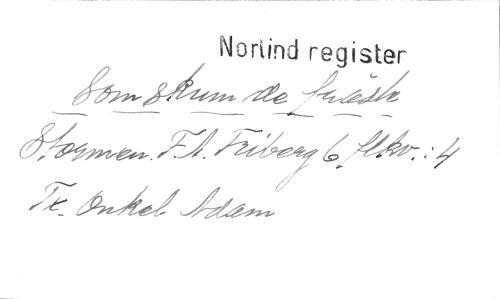 Norlind register
Som skum de
Stormen. F.A. Friberg 6 :4
Tx. Onkel Adam